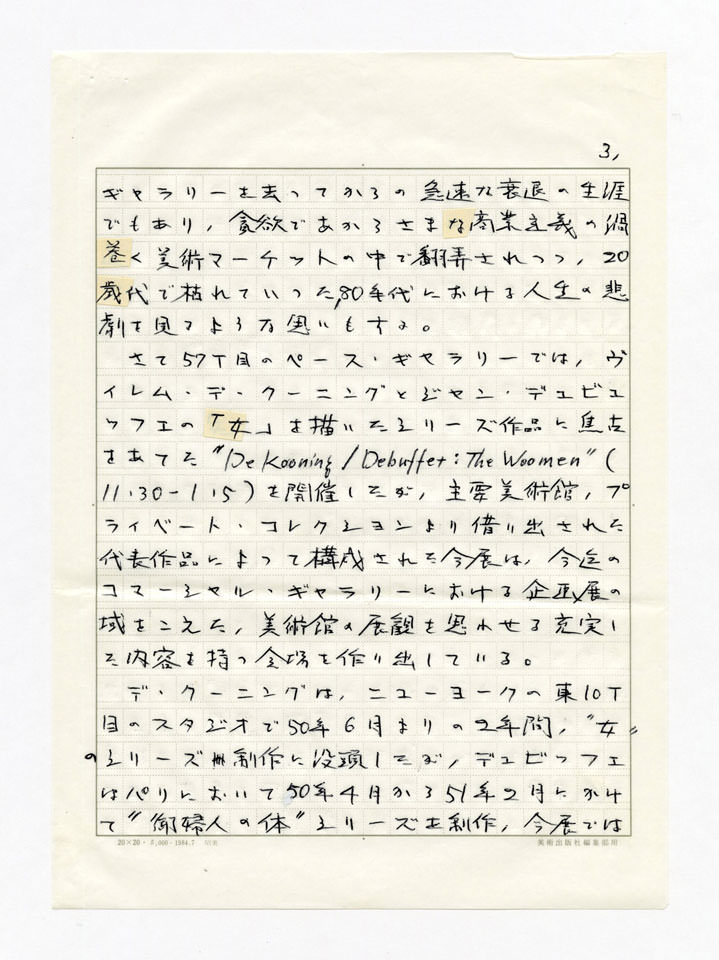 3,
ギャラリーを去ってからの急速な衰退の生涯
でもあり，貪欲であからさまな商業主義の渦
巻く美術マーケットの中で翻弄されつつ，20
歳代で枯れていった，80年代における人生の悲
劇を見るような思いもする。
さて57丁目のペース・ギャラリーでは，ヴ
ィレム・デ・クーニングとジャン・デュビュ
ッフェの「女」を描いたシリーズ作品に焦点
をあてた“De Kooning / Debuffet : The Woomen”(
11・30-1・5）を開催したが，主要美術館，プ
ライベート・コレクションより借り出された
代表作品によって構成された今展は，今迄の
コマーシャル・ギャラリーにおける企画展の
域をこえた，美術館の展観を思わせる充実し
た内容を持つ会場を作り出している。
デ・クーニングは，ニューヨークの東10丁
目のスタジオで50年6月よりの2年間，“女”
のシリーズ制作に没頭したが，デュビッフェ
はパリにおいて50年4月から51年2月にかけ
て“御婦人の体”シリーズを制作，今展では
20×20・1984.7
美術出版社編集部用